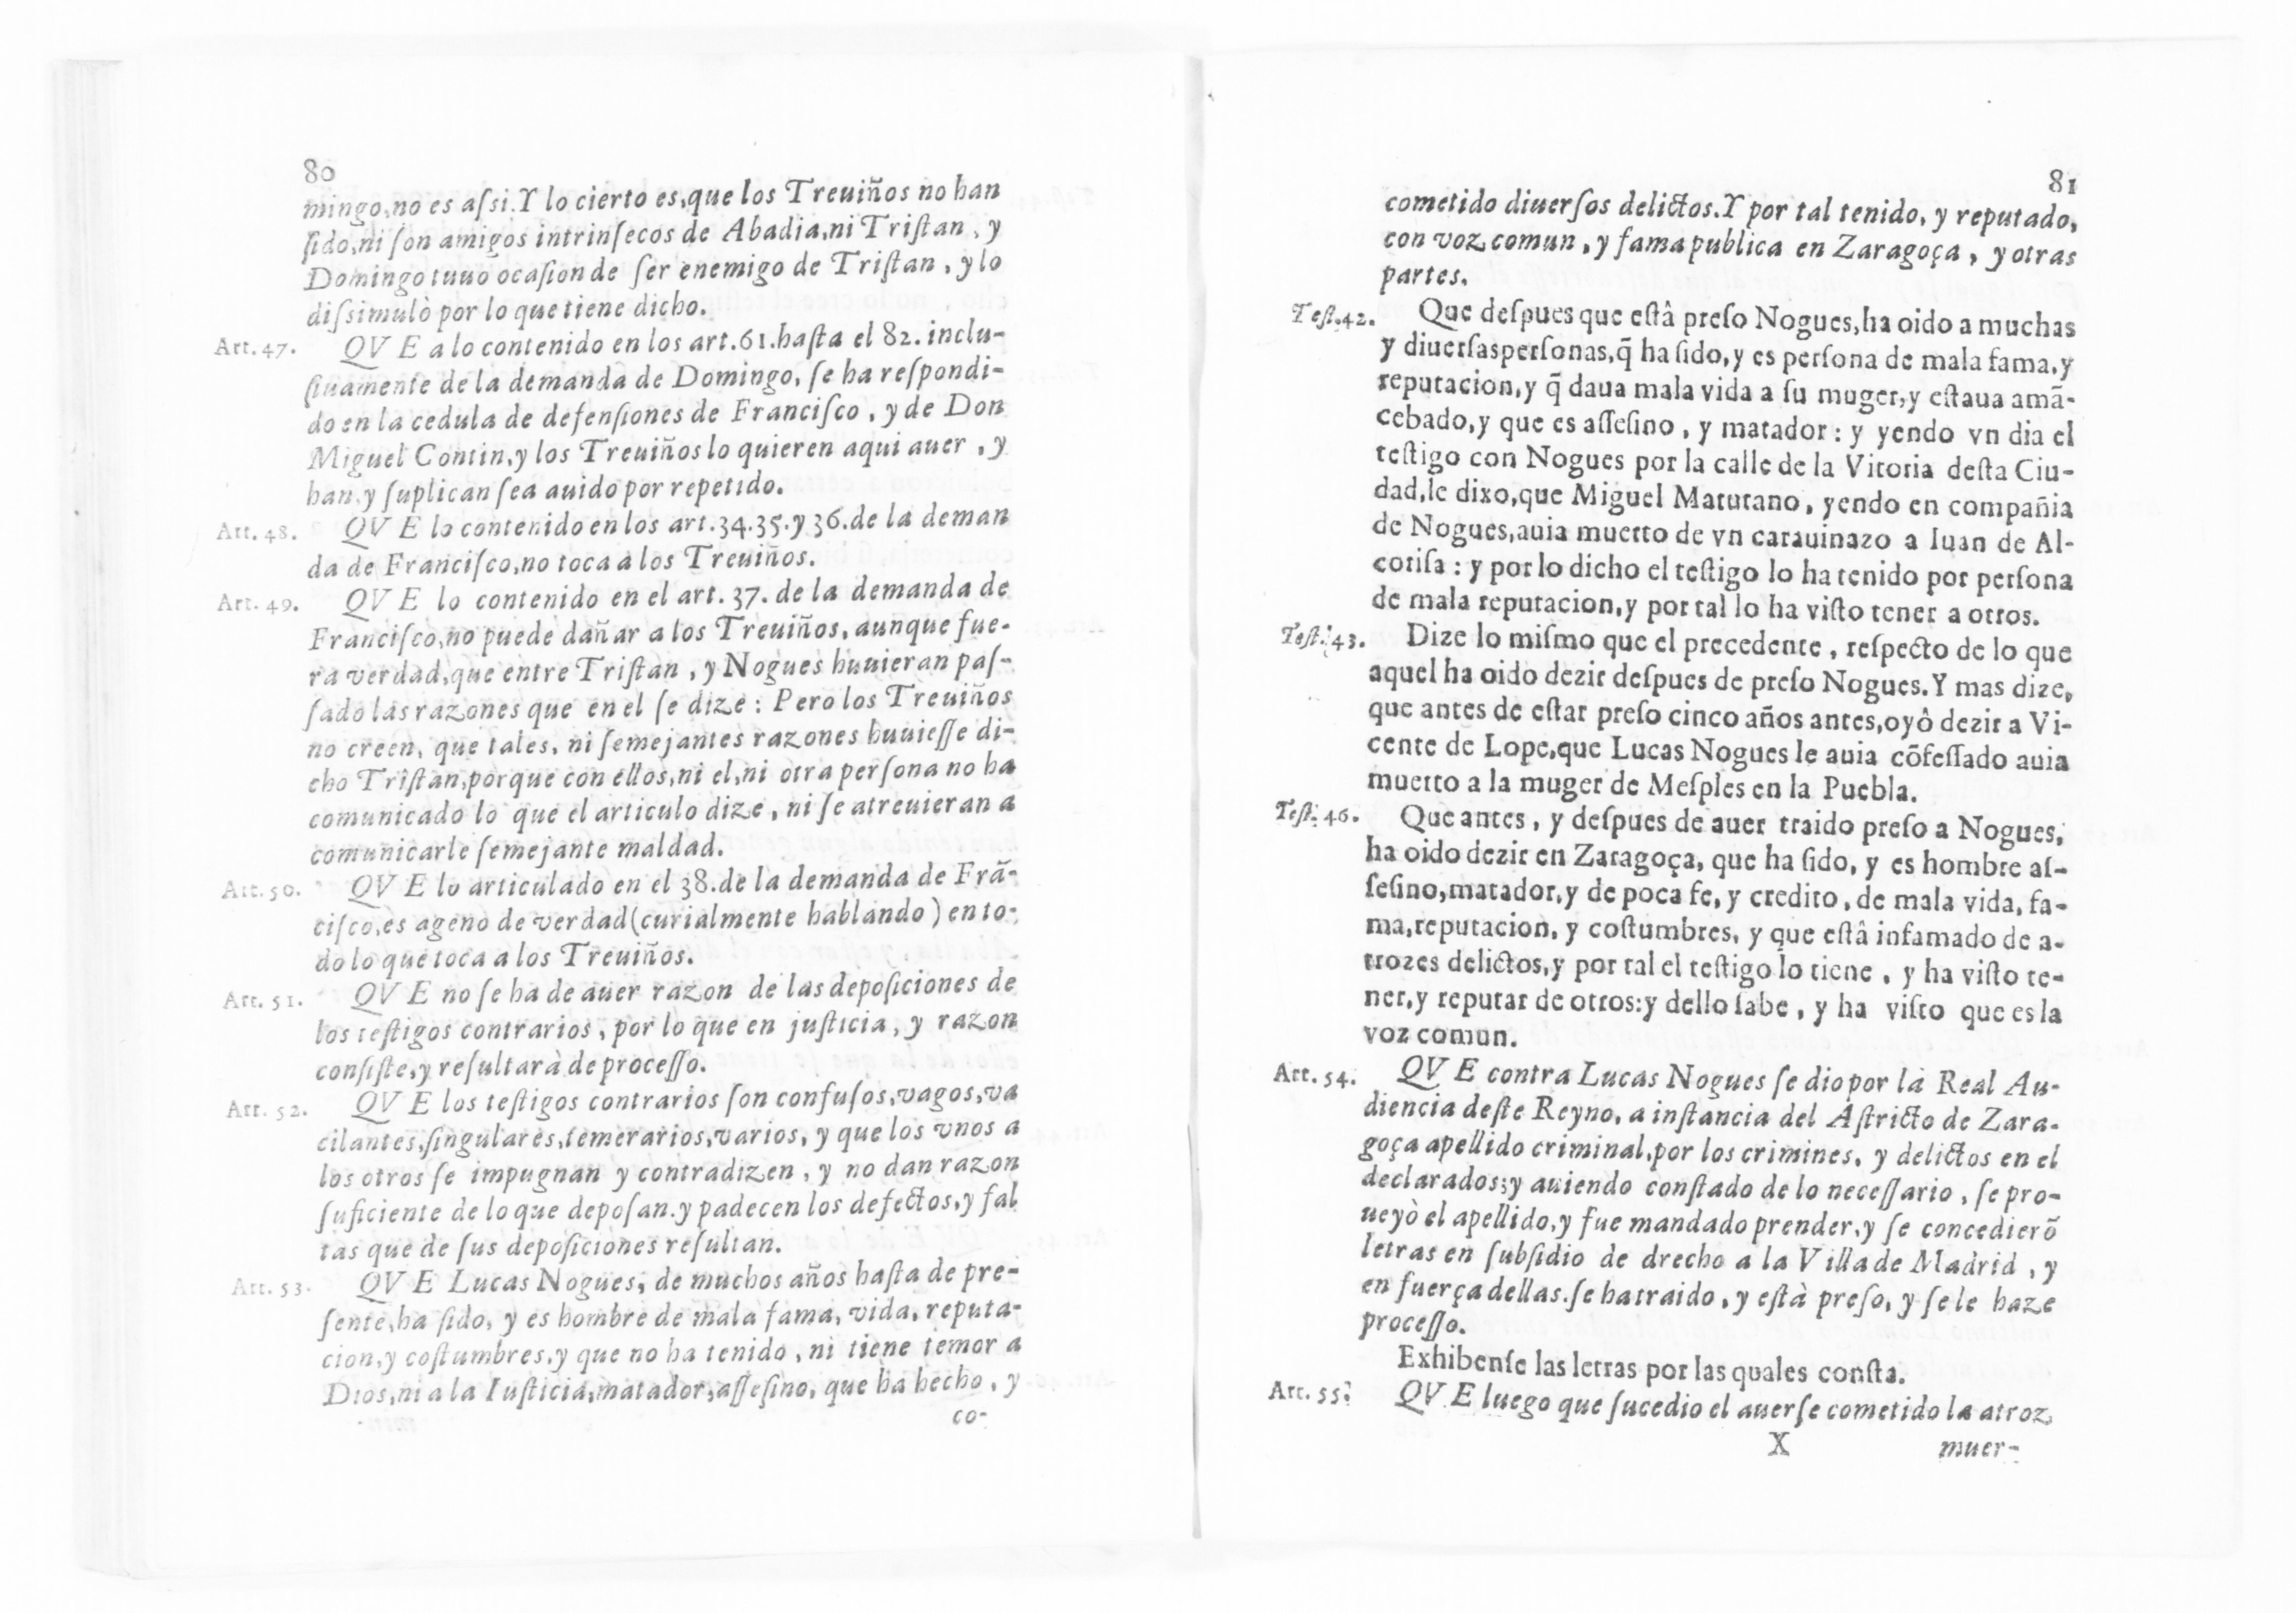 80
mingo,no es aſsi.Y lo cierto es,que los Treuiños no han
ſido,ni ſon amigos intrinſecos de Abadia,ni Triſtan, y
Domingo tuuo ocaſion de ſer enemigo de Triſtan, y lo
diſsimulò por lo que tiene dicho.
Art. 47. QVE a lo contenido en los art.61.haſta el 82. inclu-
ſiuamente de la demanda de Domingo, ſe ha reſpondi-
do en la cedula de defenſiones de Franciſco, y de Don
Miguel Contin,y los Treuiños lo quieren aqui auer, y
han,y ſuplican ſea auido por repetido.
Art. 48. QVE lo contenido en los art.34.35.y 36.de la deman
da de Franciſco,no toca a los Treuiños.
Art. 49. QVE lo contenido en el art. 37. de la demanda de
Franciſco,no puede dañar a los Treuiños, aunque fue-
ra verdad,que entre Triſtan, y Nogues huuieran paſ-
ſado las razones que en el ſe dize: Pero los Treuiños
no creen, que tales, ni ſemejantes razones huuieſſe di-
cho Triſtan,porque con ellos,ni el,ni otra perſona no ha
comunicado lo que el articulo dize, ni ſe atreuieran a
comunicarle ſemejante maldad.
Art. 50. QVE lo articulado en el 38.de la demanda de Frã-
ciſco,es ageno de verdad(curialmente hablando) en to-
do lo que toca a los Treuiños.
Art. 51. QVE no ſe ha de auer razon de las depoſiciones de
los teſtigos contrarios, por lo que en juſticia, y razon
conſiſte,y reſultarà de proceſſo.
Art. 52. QVE los teſtigos contrarios ſon confuſos,vagos,va
cilantes,ſingulares,temerarios,varios, y que los vnos a
los otros ſe impugnan y contradizen, y no dan razon
ſuficiente de lo que depoſan.y padecen los defectos,y fal
tas que de ſus depoſiciones reſultan.
Art. 53. QVE Lucas Nogues, de muchos años haſta de pre-
ſente,ha ſido, y es hombre de mala fama, vida, reputa-
cion,y coſtumbres,y que no ha tenido, ni tiene temor a
Dios,ni a la Iuſticia,matador,aſſeſino, que ha hecho, y
co-
81
cometido diuerſos delictos.Y por tal tenido, y reputado,
con voz comun, y fama publica en Zaragoça, y otras
partes.
Teſt.42. Que deſpues que eſtâ preſo Nogues,ha oido a muchas
y diuerſas perſonas,q̃ ha ſido,y es perſona de mala fama,y
reputacion,y q̃ daua mala vida a ſu muger,y eſtaua amã-
cebado,y que es aſſeſino, y matador: y yendo vn dia el
teſtigo con Nogues por la calle de la Vitoria deſta Ciu-
dad,le dixo,que Miguel Matutano, yendo en compañia
de Nogues,auia muerto de vn carauinazo a Iuan de Al-
cotiſa: y por lo dicho el teſtigo lo ha tenido por perſona
de mala reputacion,y por tal lo ha viſto tener a otros.
Teſt. 43. Dize lo miſmo que el precedente, reſpecto de lo que
aquel ha oido dezir deſpues de preſo Nogues.Y mas dize,
que antes de eſtar preſo cinco años antes,oyô dezir a Vi-
cente de Lope,que Lucas Nogues le auia cõfeſſado auia
muerto a la muger de Meſples en la Puebla.
Teſt. 46. Que antes, y deſpues de auer traido preſo a Nogues,
ha oido dezir en Zaragoça, que ha ſido, y es hombre aſ-
ſeſino,matador,y de poca fe, y credito, de mala vida, fa-
ma,reputacion, y coſtumbres, y que eſtâ infamado de a-
trozes delictos,y por tal el teſtigo lo tiene, y ha viſto te-
ner,y reputar de otros:y dello ſabe, y ha viſto que es la
voz comun.
Art. 54. QVE contra Lucas Nogues ſe dio por la Real Au-
diencia deſte Reyno, a inſtancia del Aſtricto de Zara-
goça apellido criminal,por los crimines, y delictos en el
declarados;y auiendo conſtado de lo neceſſario, ſe pro-
ueyò el apellido,y fue mandado prender,y ſe concedierõ
letras en ſubſidio de drecho a la Villa de Madrid, y
en fuerça dellas.ſe ha traido, y eſtà preſo, y ſe le haze
proceſſo.
Exhibenſe las letras por las quales conſta.
Art. 55. QVE luego que ſucedio el auerſe cometido la atroz
X muer-